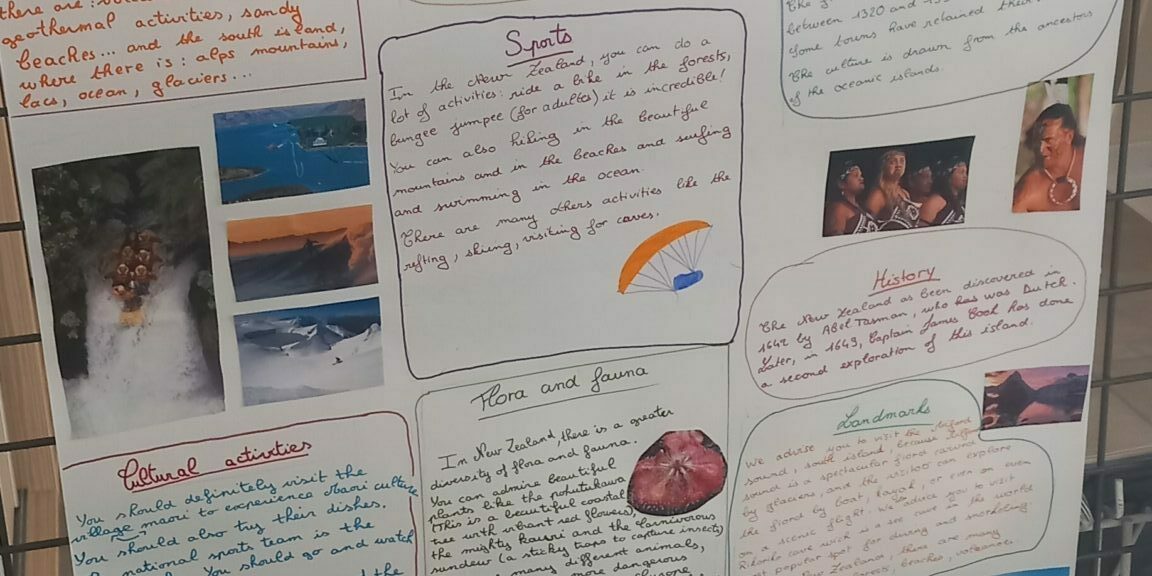 there are :
geothermal activities, sandy
beaches... and the south island,
where there is : alps mountains,
lacs, ocean, glaciers...
Sports
In the New Zealand, you can do a
lot of activities : ride a bike in the forests,
bungee jumpee (for adultes) it is incredible!
You can also hiking in the beautiful
mountains and in the beaches and surfing
and swimming in the ocean.
There are many others activities like the
refting, skiing, visiting for caves.
between 1320 and
Some towns have retained their
The culture is drawn from the ancestors
of the oceanic islands.
History
The New Zealand as been discovered in
1642 by Abel Tasman, who has was Dutch.
Later, in 1649, Captain James Cook has done
a second exploration of this island.
Cultural activities
You should definitely visit the
village maori to experience maori culture
You should also try their dishes.
national sports team is the
You should go and watch
the
Flora and fauna
In New Zealand, there is a greater
diversity of flora and fauna.
You can admire beautiful
plants like the pohutukawa
(This is a beautiful coastal
tree with vibrant red flowers),
the mighty kauri and the carnivorous
sundew (a sticky traps to capture insects)
many different animals,
more dangerous
Landmarks
We advise you to visit the
sound, south island, because
sound is a spectacular fiord carved
by glaciers, and the visitors can explore
the fiord by boat, kayak, or even on
on a scenic flight. We you to visit
cave wich a see cave in the world
popular spot for diving and snorkeling
New Zealand, there are many
forests, beaches, volcanoes.